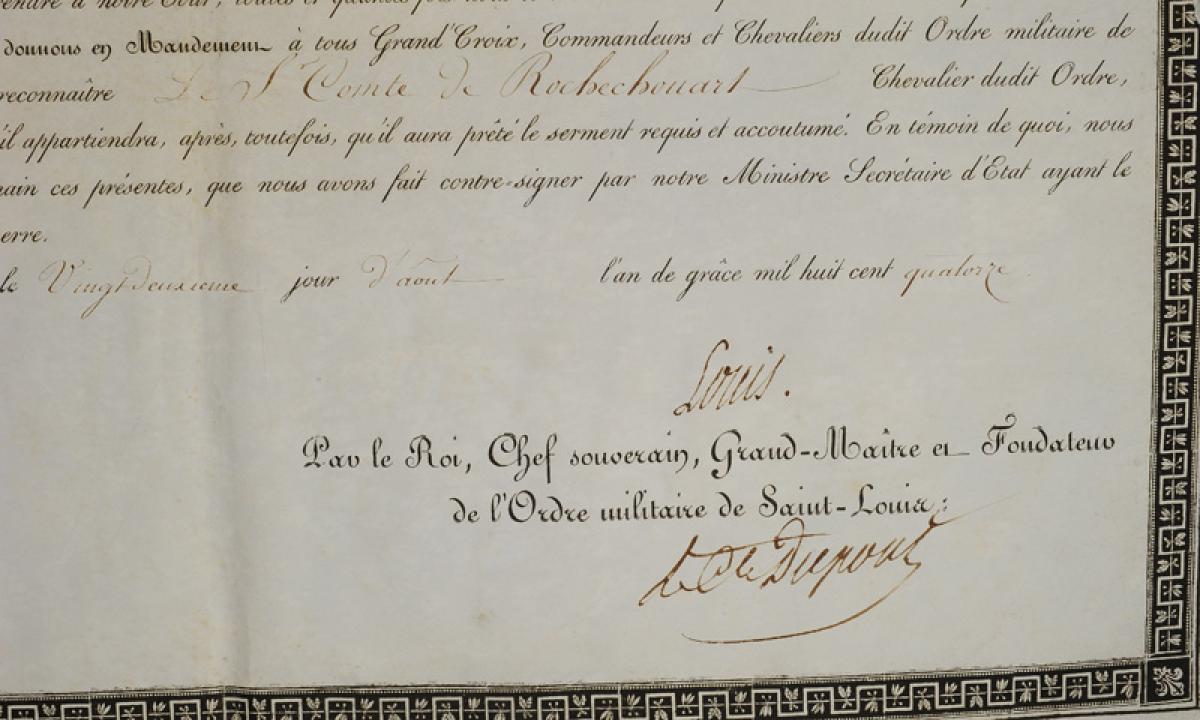 donnons en Mandement à tous Grand'Croix, Commandeurs et Chevaliers dudit Ordre militaire de
reconnaître Le Sr Comte de Rochechouart Chevalier dudit Ordre,
'il appartiendra, après, toutefois, qu'il aura prêté le serment requis et accoutumé. En témoin de quoi, nous
main ces présentes, que nous avons fait contre-signer par notre Ministre Secrétaire d'Etat ayant le
erre.
le Vingt deuxieme jour d'août l'an de grâce mil huit cent quatorze
Louis.
Par le Roi, Chef souverain, Grand-Maître et Fondateur
de l'Ordre militaire de Saint-Louis:
le Cte Dupont